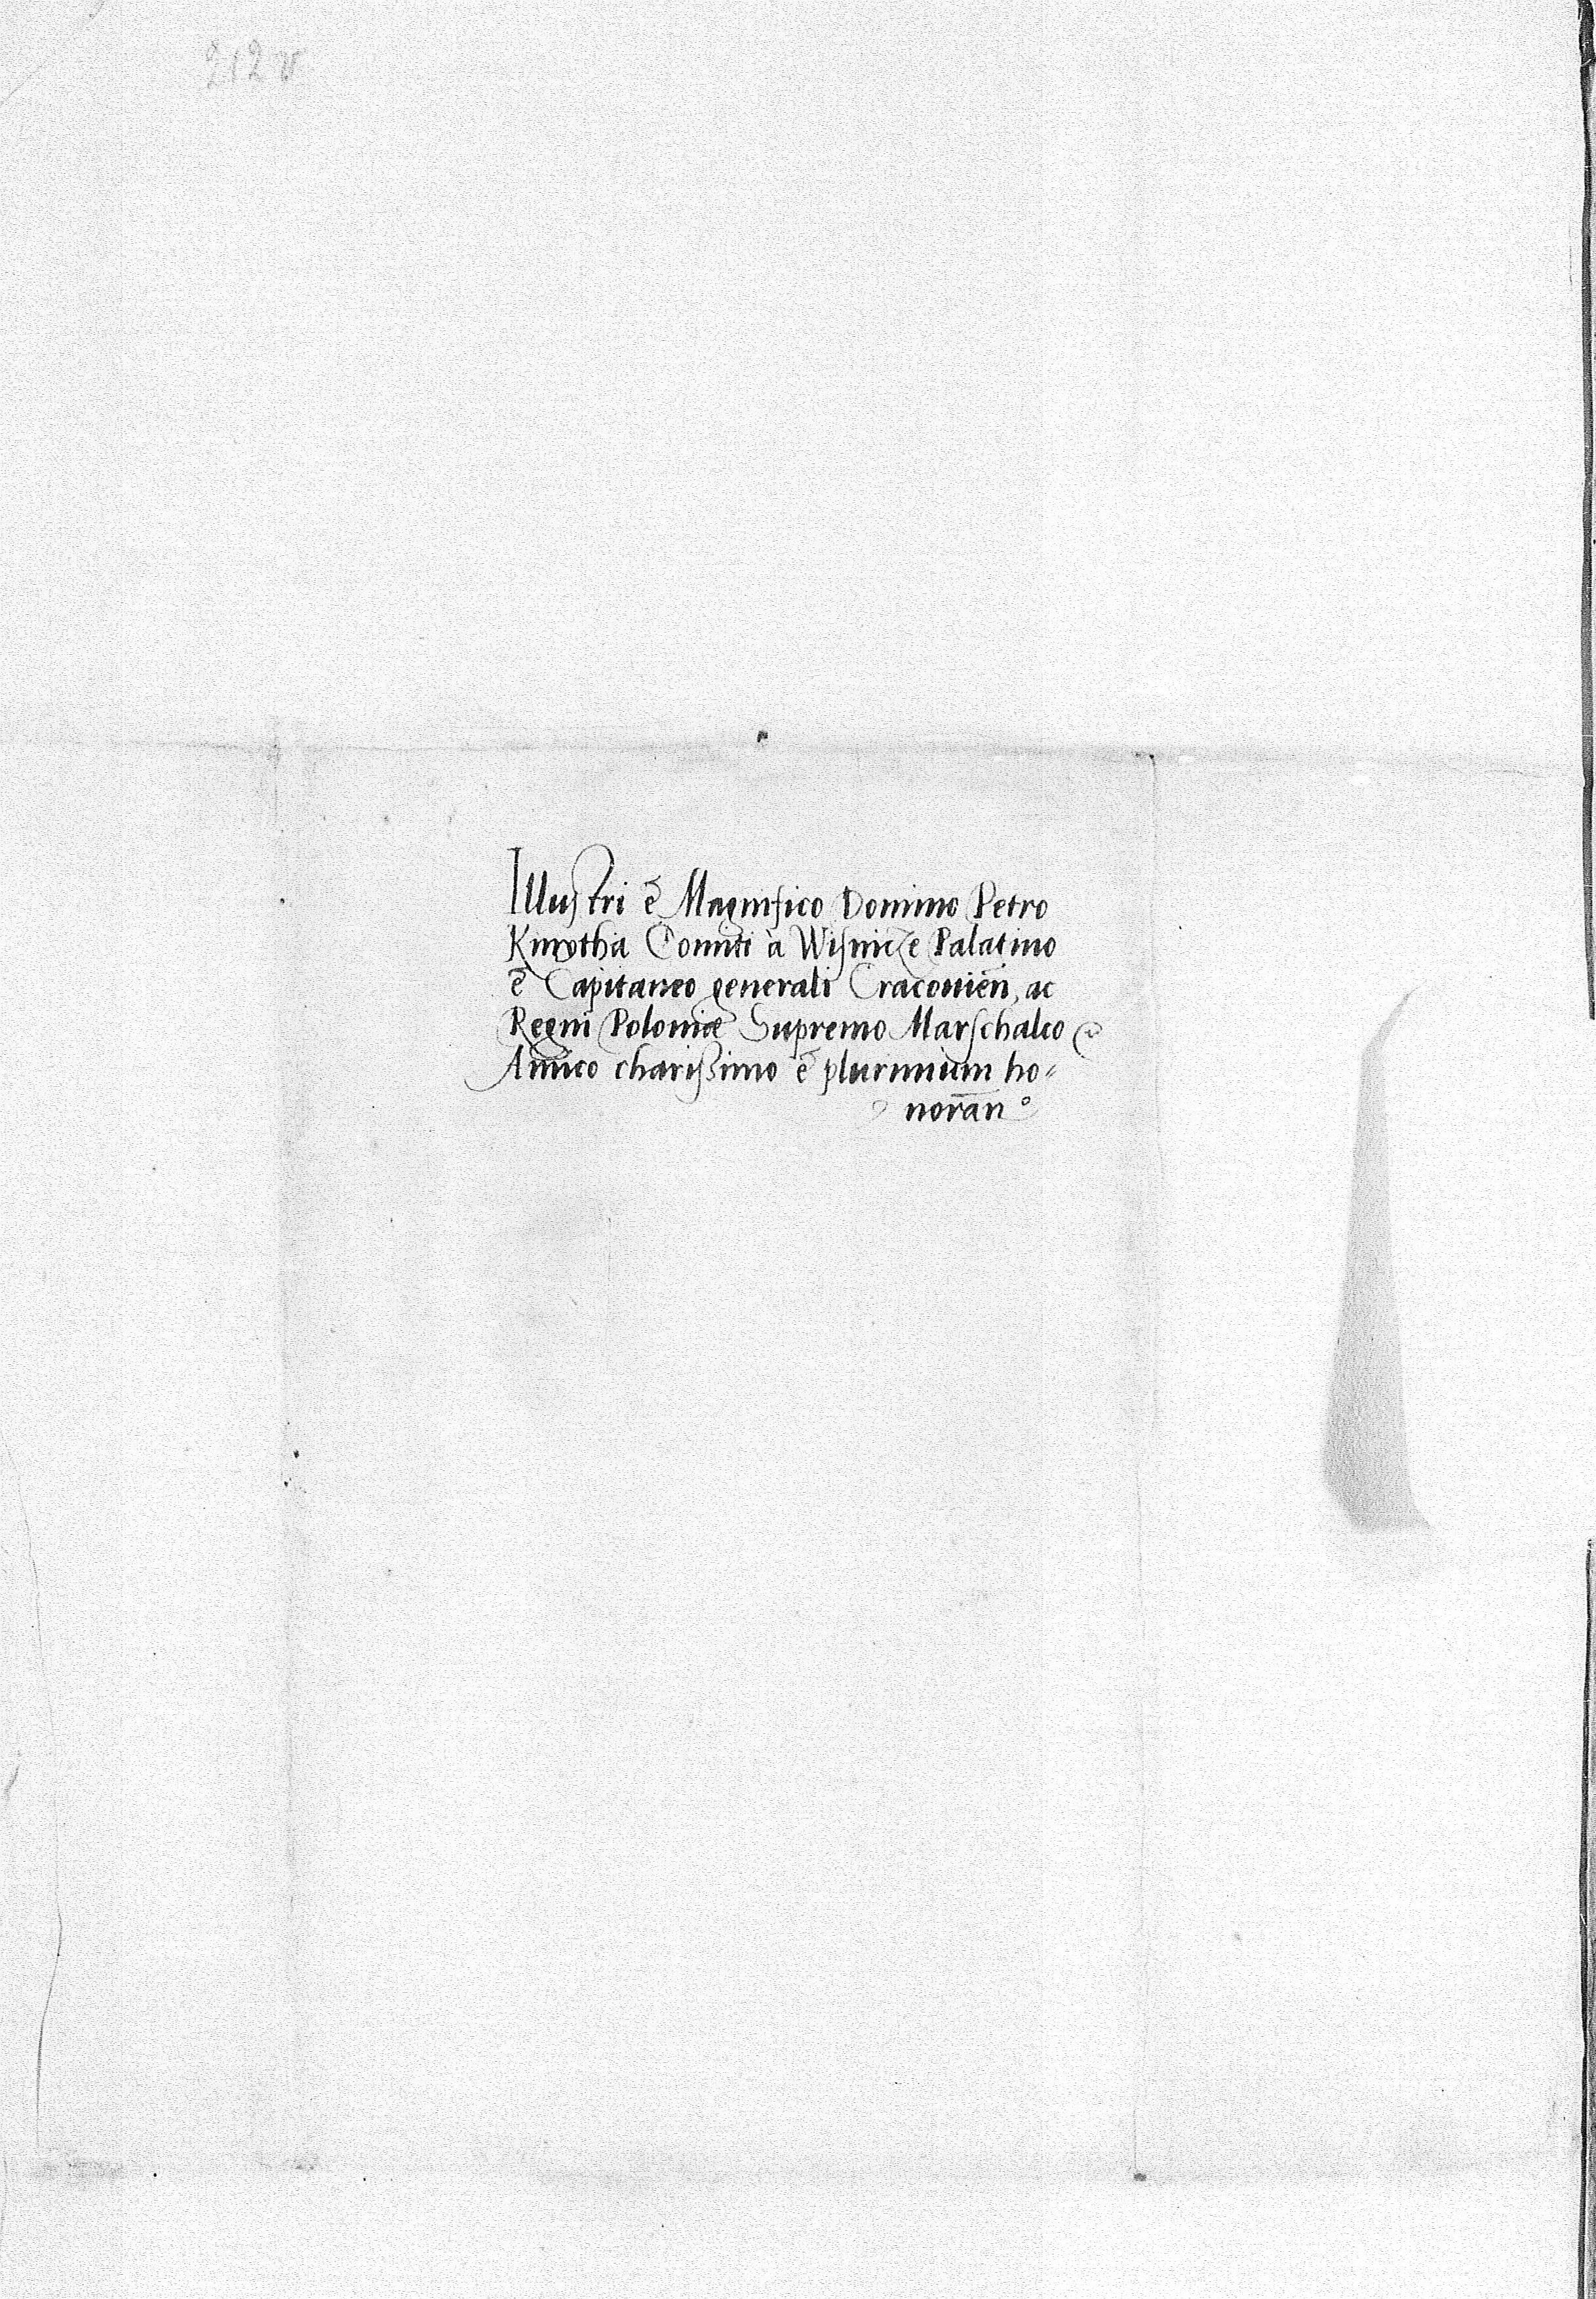 212 v
Illustri et Magnifico Domino Petro
Kmytha Comiti à Wisnicze Palatino
et Capitaneo generali Cracouien̄, ac
Regni Poloniæ Supremo Marschalco
Amico charissimo et plurimum ho=
noran̄